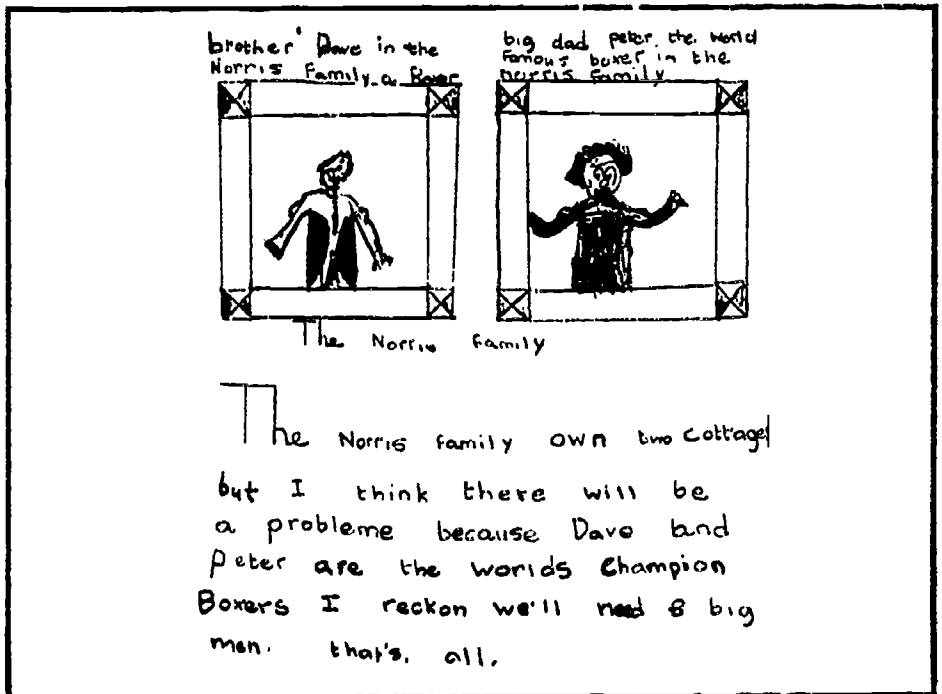 brother' Dave in the
Norris Family a Boxer
big dad peter. the world
Famous boxer in the
norris family
The Norris Family
The Norris family own two Cottages
but I think there will be
a probleme because Dave and
Peter are the worlds Champion
Boxers I reckon we'll need 8 big
men. that's. all.